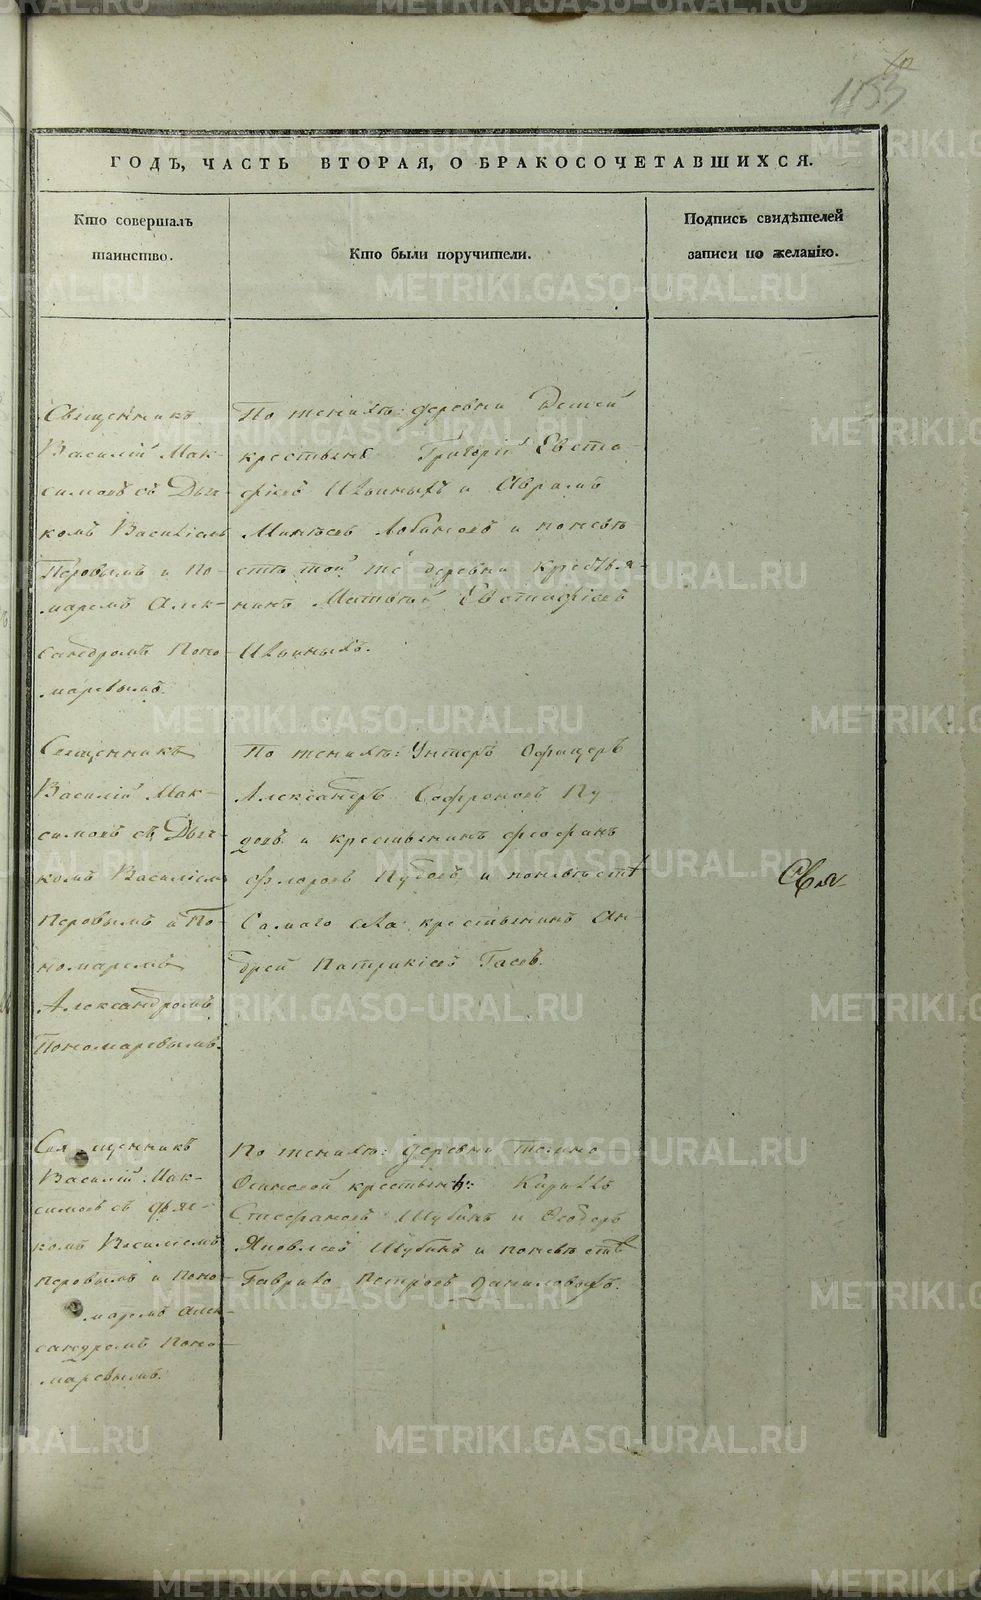 1153
ГОДЪ, ЧАСТЬ ВТОРАЯ, О БРАКОСОЧЕТАВШИХСЯ.
Кто совершалъ
таинство.
Кто были поручители.
Подпись свидѣтелей
записи по желанію.
Священникъ
Василій Мак-
симовъ съ Дьяч-
комъ Василіемъ
Перовымъ и По-
маремъ Алек-
сандромъ Поно-
маревымъ.
По женихѣ: деревни
крестьяне Григорій Евста-
фіевъ и Аврамъ
Лобановъ и по невѣ
стѣ той же деревни крестья-
нинъ Матвѣй Евстафіевъ
Священникъ
Василій Мак-
симовъ съ Дьяч-
комъ Василіемъ
Перовымъ и По-
номаремъ
Александромъ
Пономаревымъ.
По женихѣ: Унтеръ Офицеръ
Александръ Софроновъ Пу-
довъ и крестьянинъ Феофанъ
Флоровъ и по невѣстѣ
Самаго села крестьянинъ Ан-
дрей Патрикіевъ Гаевъ.
Свя
Священникъ
Василій Мак-
симовъ съ Дьяч-
комъ Василіемъ
Перовымъ и Поно-
маремъ Алек-
сандромъ Поно-
маревымъ.
По женихѣ: деревни Темно
Осиновой крестьяне: Кирилъ
Стефановъ Шубинъ и Ѳеодоръ
Яковлевъ Шубинъ и по невѣстѣ
Гаврило Петровъ Даниловыхъ.
METRIKI.GASO-URAL.RU